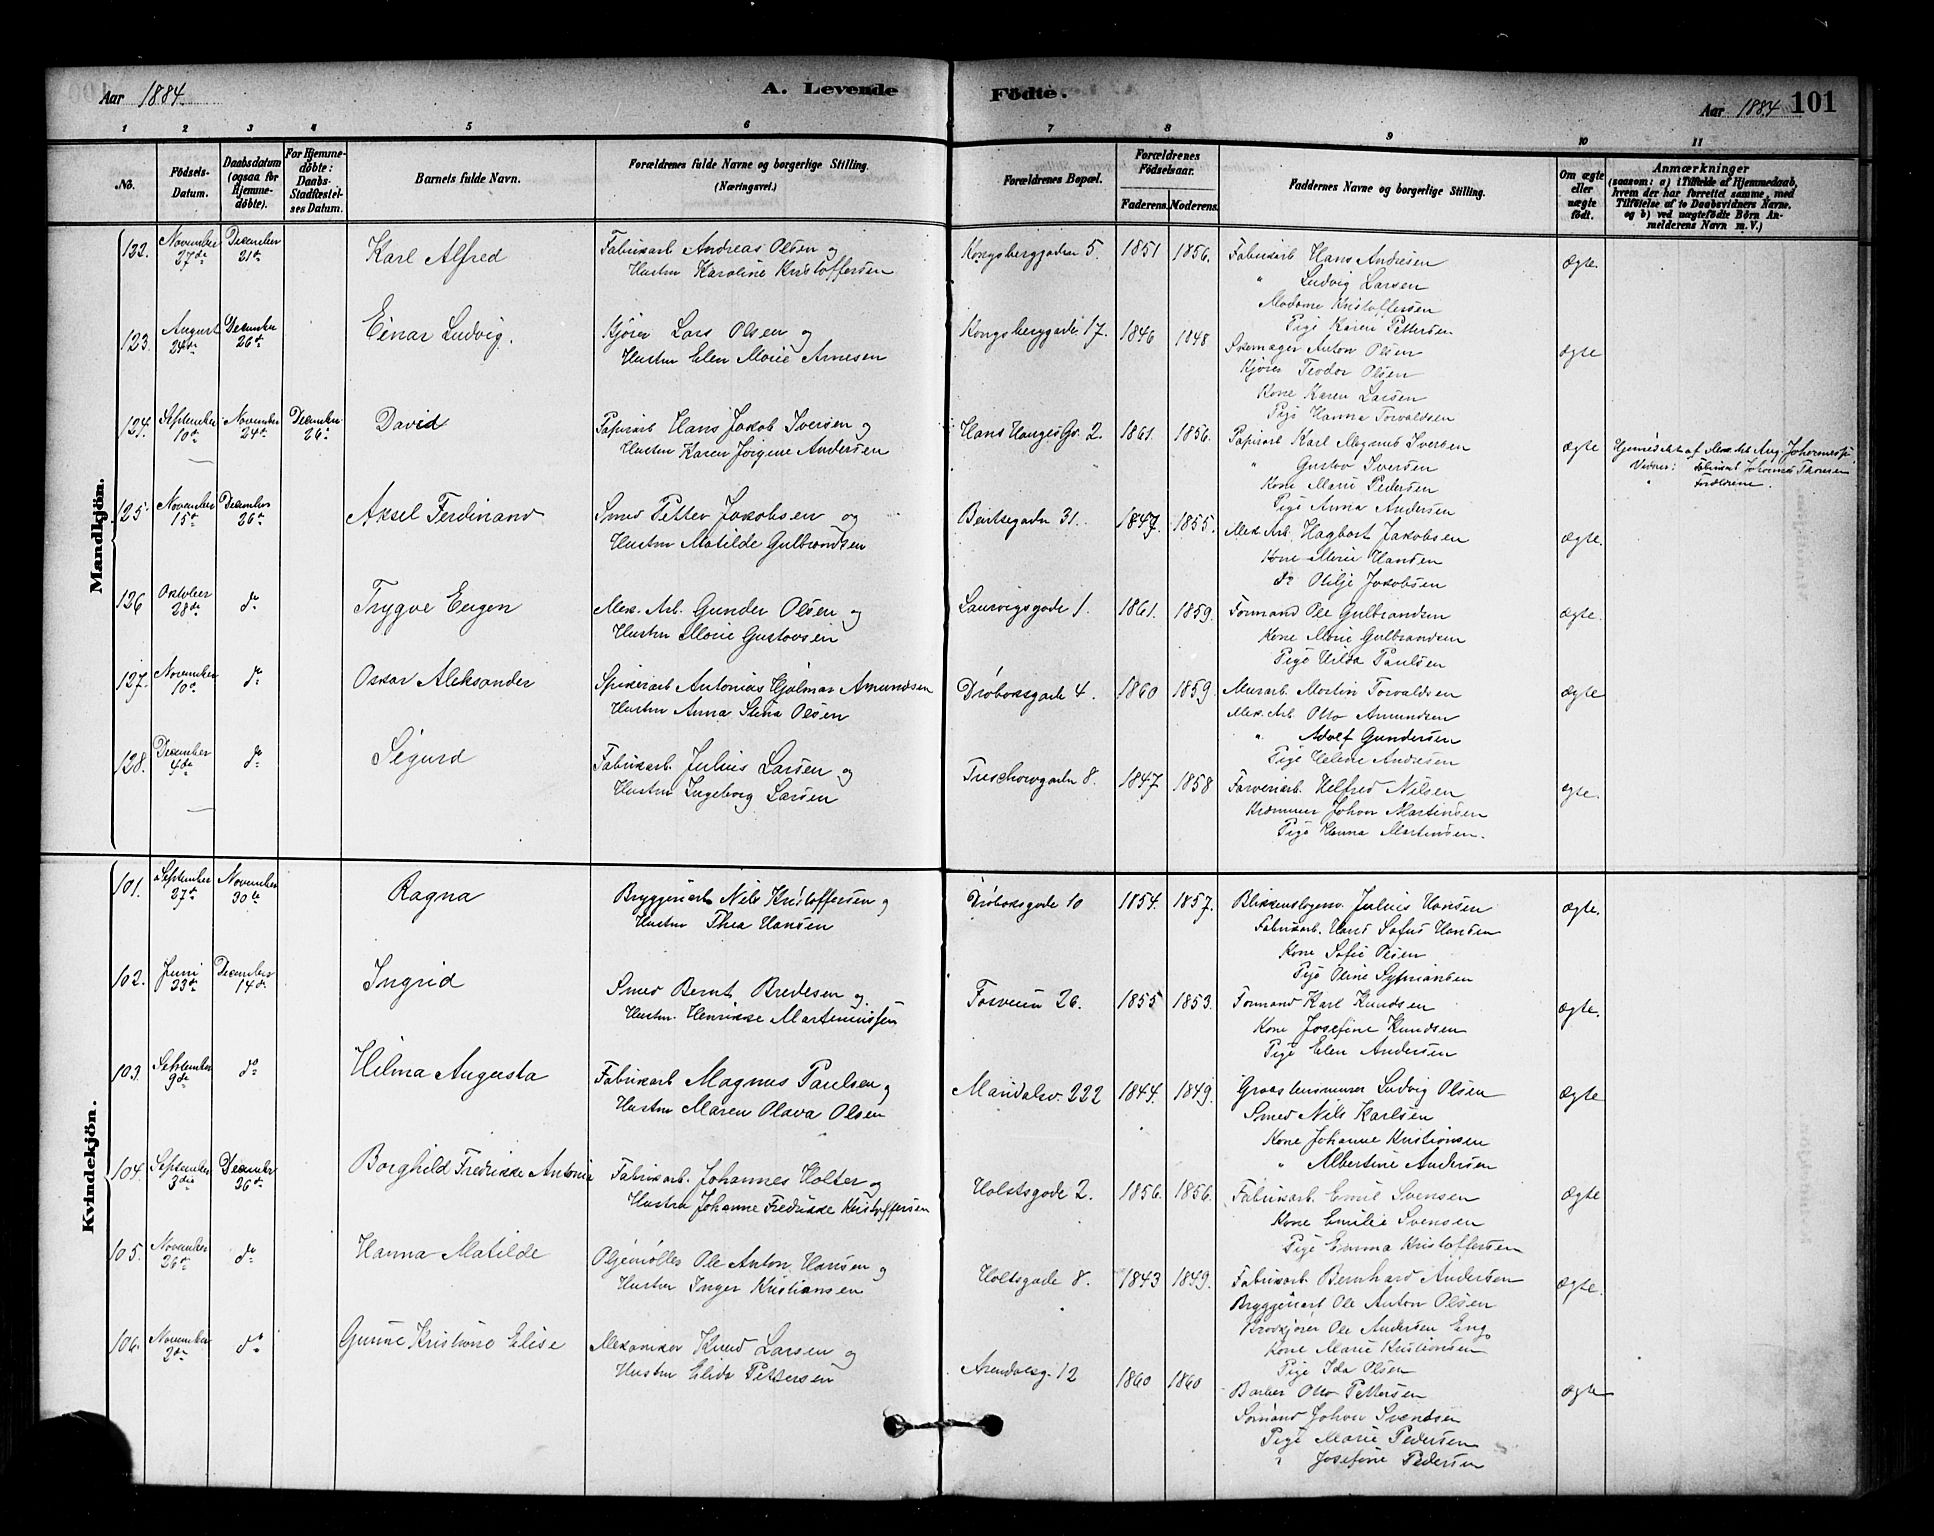 Aar 1884.
A. Levende
Födte.
Aar 1884
101
1 2 3 4 5 6 7 8 9 10 11
No.
Födsels-
Datum.
Daabsdatum
(ogsaa for
Hjemme-
döbte).
For Hjemme-
döbte:
Daabs-
Stadfæstel-
ses Datum.
Barnets fulde Navn.
Forældrenes fulde Navne og borgerlige Stilling.
(Næringsvei.)
Forældrenes Bopæl.
Forældrenes
Födselsaar.
Faderens.
Moderens.
Faddernes Navne og borgerlige Stilling.
Om ægte
eller
uægte
födt.
Anmærkninger
(saasom: a) i Tilfælde af Hjemmedaab,
hvem der har forrettet samme, med
Tilföielse af to Daabsvidners Navne.
og b) ved uægtefödte Börn An-
melderens Navn m. V.)
Mandkjön.
122. November 27de December 21de Karl Alfred Fabrikarb Andreas Olsen og
Hustru Karoline Kristoffersen
Kongsberggaden 5. 1851 1856. Fabrikarb Hans Andresen
" Ludvig Larsen
Madame Kristoffersen
Pige Karen Pettersen
ægte.
123. August 24de December 26de Einar Ludvig. Kjører Lars Olsen og
Hustru Elen Marie Arnesen
Kongsberggade 17. 1846 1848 Skomager Anton Olsen
Kjører Teodor Olsen
Kone Karen Larsen
Pige Hanna Torvaldsen
ægte
124. September 10de November 24de December 26de David Papirarb Hans Jakob Iversen og
Hustru Karen Jörgine Andersen
Hans Hauges G. 2. 1861. 1856. Papirarb Karl Magnus Iversen
" Gustav Iversen
Kone Marie Pedersen
Pige Anna Andersen
ægte
Hjemmedøbt af Mek. Arb. Aug. Johannes
Vidner: Fabrikarb Johannes Thomsen
" Forældrene.
125. November 15de December 26de Aksel Ferdinand Smed Petter Jakobsen og
Hustru Matilde Gulbrandsen
31. 1847. 1855. Mek. Arb. Hagbart Jakobsen
Kone Marie Hansen
do Otilje Jakobsen
ægte.
126 Oktober 28de do Trygve Eugen Mek. Arb. Gunder Olsen og
Hustru Marie Gustavsen
Laurvigsgade 1. 1861. 1859. Formand Ole Gulbrandsen
Kone Marie Gulbrandsen
Pige Hilda Paulsen
ægte.
127. November 10de do Oskar Aleksander Spikerarb Antonius Hjalmar Amundsen
Hustru Anna Stina Olsen
Drøbaksgade 4. 1860 1859. Murarb Martin Torvaldsen
Mek. Arb Otto Amundsen
" Adolf Gundersen
Pige Helene Andresen
ægte
128. December 4de do Sigurd Fabrikarb. Julius Larsen og
Hustru Ingeborg Larsen
Treschowgaden 8. 1847 1858 Farveriarb. Helfred Nilsen
Kræmmer Johan Martinsen
Pige Hanna Martinsen.
ægte.
Kvindekjön.
101. September 27de November 30te Ragna Bryggeriarb Nils Kristoffersen og
Hustru Thea Hansen
Drøbaksgade 10 1854. 1857. Blikkenslagersv. Julius Hansen
Fabrikarb. Hans Sofus Hansen
Kone Sofie Olsen
Pige Oline
ægte.
102. Juni 23de December 14de Ingrid Smed Bernt Bredesen og
Hustru. Henrikke Martiniussen
26. 1855 1853. Formand Karl Knudsen
Kone Josefine Knudsen
Pige Elen Andersen
ægte.
103. September 9de do Hilma Augusta Fabrikarb Magnus Paulsen og
Hustru Maren Olava Olsen
Maridalsv. 222 1844. 1849. Graastensmurer Ludvig Olsen
Smed Nils Karlsen
Kone Johanne Kristiansen
" Albertine Andersen
ægte
104. September 3die December 26de Borghild Fredrikke Antonia Fabrikarb. Johannes Holter og
Hustru Johanne Fredrikke Kristoffersen
Holstsgade 2. 1856. 1856. Fabrikarb. Emil Svensen
Kone Emilie Svensen
Pige Emma Kristoffersen
ægte
105. November 26de do Hanna Matilde Oljemøller Ole Anton Hansen og
Hustru Inger Kristiansen
Holtsgade 8. 1843 1849. Fabrikarb Bernhard Andersen
Bryggeriarb Ole Anton Olsen
Brødkjører Ole Andersen Eng
Kone Marie Kristiansen
Pige Ida Olsen
ægte.
106. November 2de do Gunne Kristiane Elise Mekaniker Knud Larsen og
Hustru Elida Pettersen
Arendalsg. 12 1860 1860 Barber Otto Pettersen
Sömand Johan Svendsen
Pige Marie Pedersen
" Josefine Pedersen
ægte